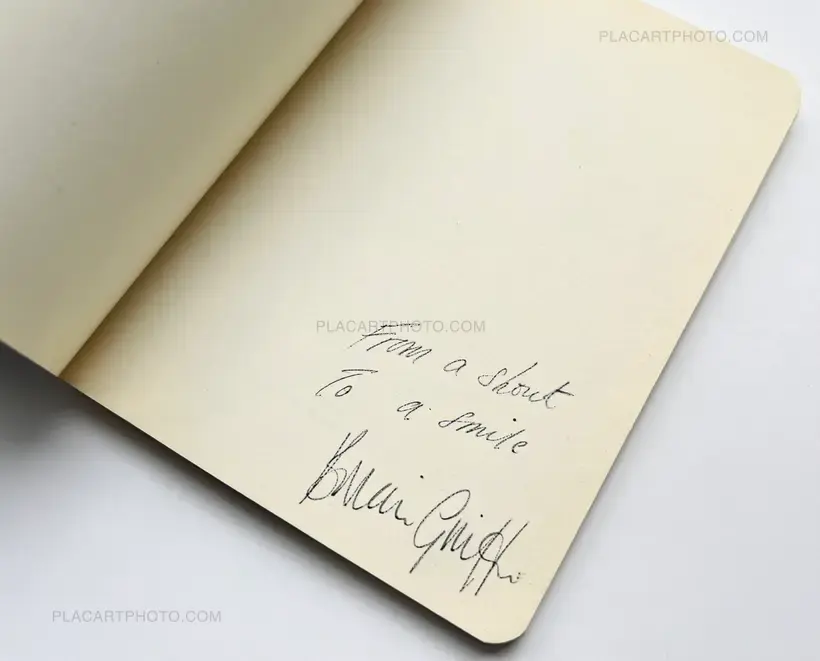 PLACARTPHOTO.COM
PLACARTPHOTO.COM
From a shout
To a smile
Brian Griffin
PLACARTPHOTO.COM